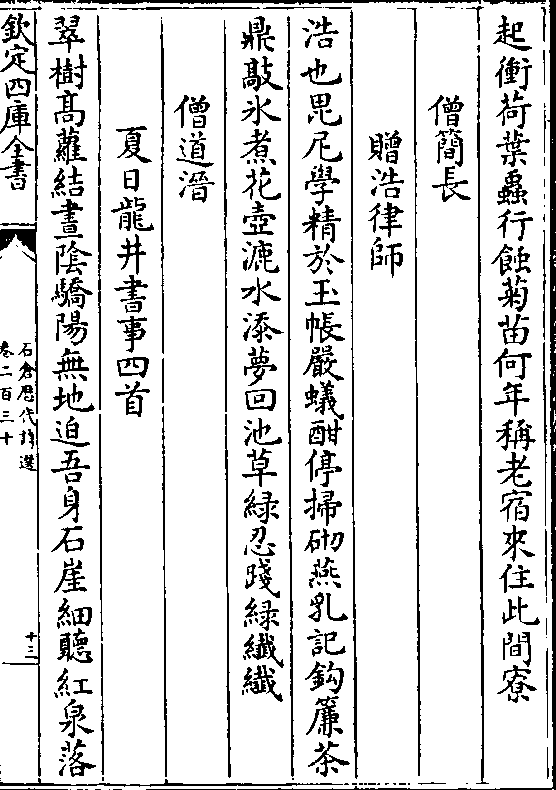 起衝荷葉蟲行蝕菊苗何年稱老宿來住此間寮
僧簡長
贈浩律師
浩也毘尼學精於玉帳嚴蟻酣停掃砌燕乳記鈎簾茶
鼎敲氷煮花壺漉水添夢回池草緑忍踐緑纖纖
僧道潛
夏日龍井書事四首
翠樹髙蘿結晝陰驕陽無地迫吾身石崖細聽紅泉落
欽定四庫全書
石倉歴代詩選
卷二百三十
十三